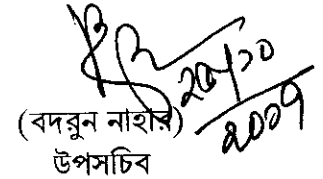 ২৩/১০
২০০৭
(বদরুন নাহার)
উপসচিব